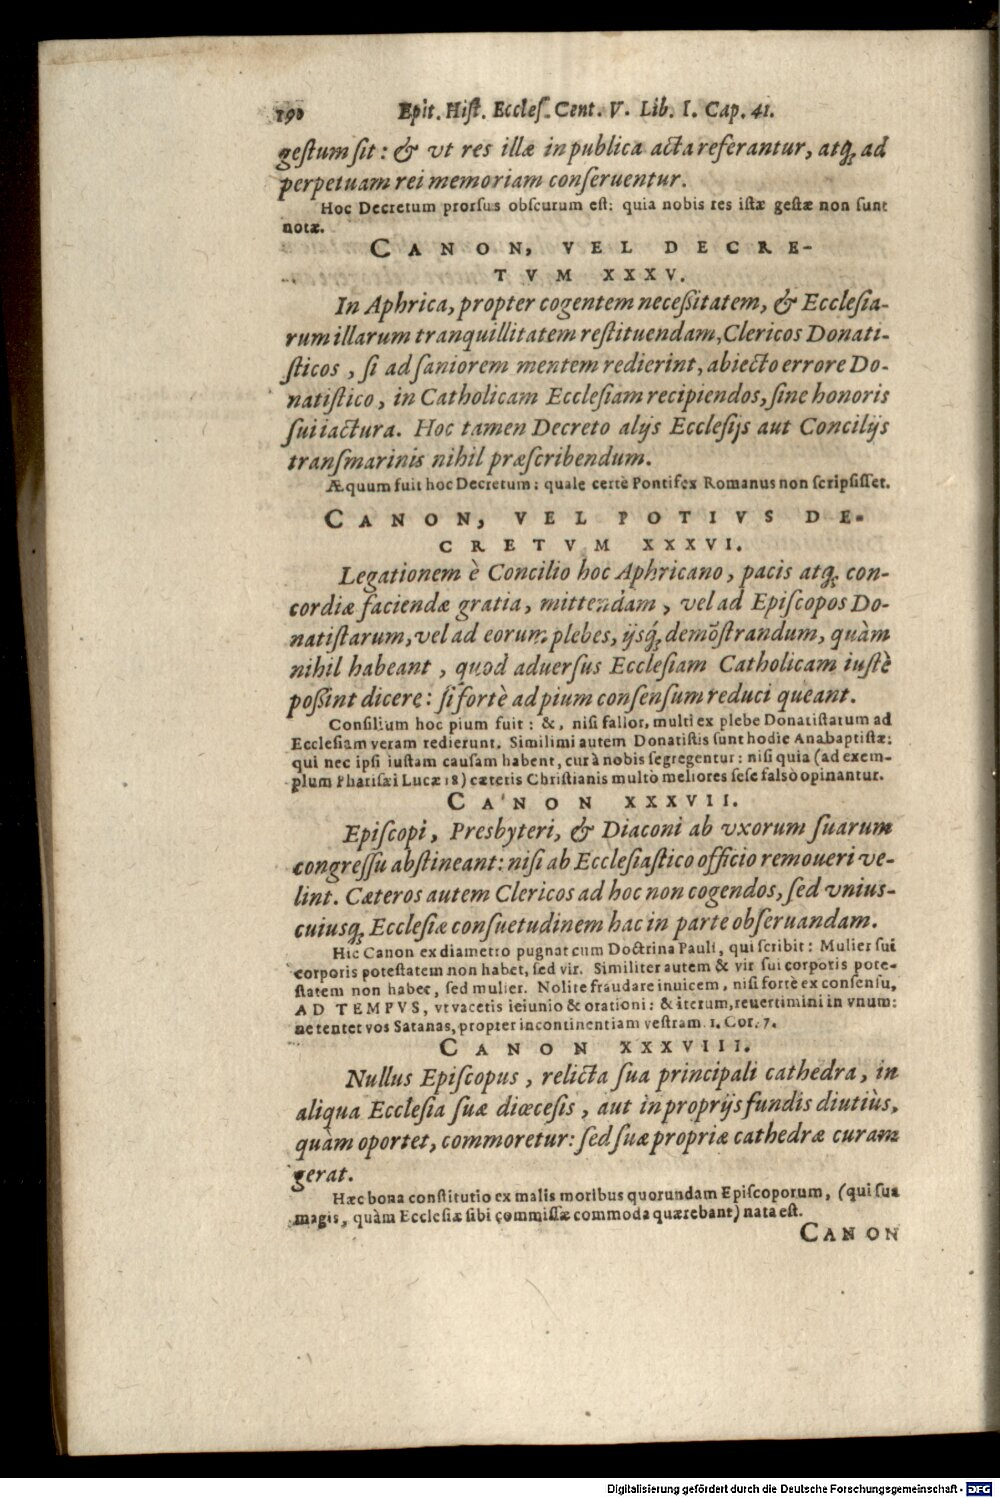 190 Epit. Hiſt. Eccleſ. Cent. V. Lib. I. Cap. 41.
geſtum ſit: & vt res illæ in publica acta referantur, atq́ꝫ ad
perpetuam rei memoriam conſeruentur.
Hoc Decretum prorſus obſcurum eſt: quia nobis res iſtæ geſtæ non ſunt
notæ.
CANON, VEL DECRE-
TVM XXXV.
In Aphrica, propter cogentem neceßitatem, & Eccleſia-
rum illarum tranquillitatem reſtituendam, Clericos Donati-
ſticos, ſi ad ſaniorem mentem redierint, abiecto errore Do-
natiſtico, in Catholicam Eccleſiam recipiendos, ſine honoris
ſui iactura. Hoc tamen Decreto alijs Eccleſijs aut Concilijs
tranſmarinis nihil præſcribendum.
Æquum fuit hoc Decretum: quale certè Pontifex Romanus non ſcripſiſſet.
CANON, VEL POTIVS DE-
CRETVM XXXVI.
Legationem è Concilio hoc Aphricano, pacis atqꝫ con-
cordiæ faciendæ gratia, mittendam, vel ad Epiſcopos Do-
natiſtarum, vel ad eorum plebes, ijsq́ꝫ demõſtrandum, quàm
nihil habeant, quod aduerſus Eccleſiam Catholicam iuſtè
poßint dicere: ſi fortè ad pium conſenſum reduci queant.
Conſilium hoc pium fuit: &, niſi fallor, multi ex plebe Donatiſtatum ad
Eccleſiam veram redierunt. Similimi autem Donatiſtis ſunt hodie Anabaptiſtæ:
qui nec ipſi iuſtam cauſam habent, cur à nobis ſegregentur: niſi quia (ad exem-
plum Phariſæi Lucæ 18) cæteris Chriſtianis multò meliores ſeſe falsò opinantur.
CANON XXXVII.
Epiſcopi, Presbyteri, & Diaconi ab vxorum ſuarum
congreſſu abſtineant: niſi ab Eccleſiaſtico officio remoueri ve-
lint. Cæteros autem Clericos ad hoc non cogendos, ſed vnius-
cuiusqꝫ Eccleſiæ conſuetudinem hac in parte obſeruandam.
Hic Canon ex diametro pugnat cum Doctrina Pauli, qui ſcribit: Mulier ſui
corporis poteſtatem non habet, ſed vir. Similiter autem & vir ſui corporis pote-
ſtatem non habet, ſed mulier. Nolite fraudare inuicem, niſi fortè ex conſenſu,
AD TEMPVS, vt vacetis ieiunio & orationi: & iterum, reuertimini in vnum:
ne tentet vos Satanas, propter incontinentiam veſtram. 1. Cor. 7.
CANON XXXVIII.
Nullus Epiſcopus, relicta ſua principali cathedra, in
aliqua Eccleſia ſuæ diœceſis, aut in proprijs fundis diutiùs,
quàm oportet, commoretur: ſed ſuæ propriæ cathedræ curam
gerat.
Hæc bona conſtitutio ex malis moribus quorundam Epiſcoporum, (qui ſua
magis, quàm Eccleſiæ ſibi commiſſæ commoda quærebant) nata eſt.
CANON
Digitalisierung gefördert durch die Deutsche Forschungsgemeinschaft - DFG